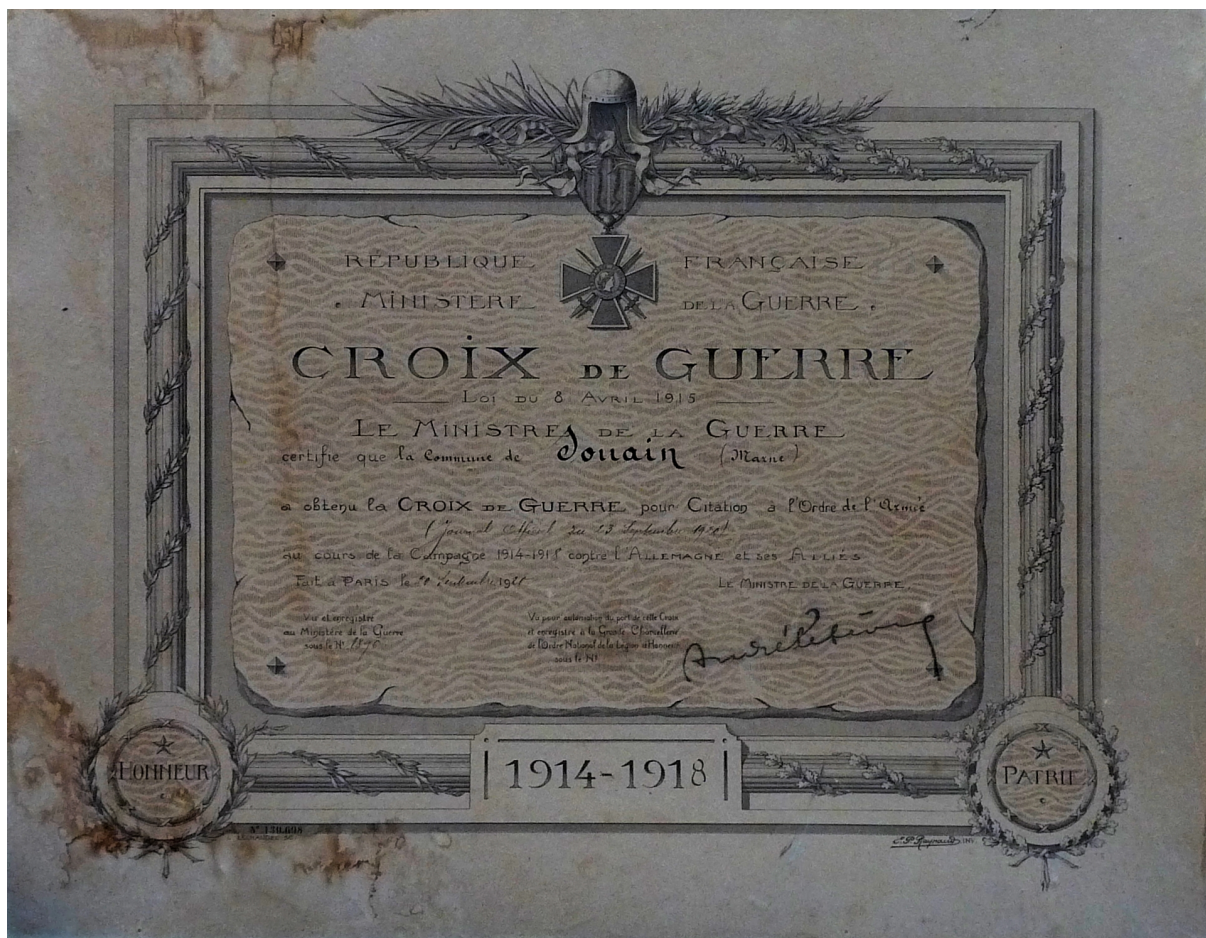 RÉPUBLIQUE FRANÇAISE
MINISTÈRE DE LA GUERRE
CROIX DE GUERRE
LOI DU 8 AVRIL 1915
LE MINISTRE DE LA GUERRE
certifie que la Commune de Souain (Marne)
a obtenu la CROIX DE GUERRE pour Citation à l'Ordre de l'Armée
(Journal Officiel du 23 Septembre 1920)
au cours de la Campagne 1914-1918 contre l'ALLEMAGNE et ses ALLIÉS
Fait à PARIS le Septembre LE MINISTRE DE LA GUERRE
Vu et enregistré
au Ministère de la Guerre
sous le N°
Vu pour autorisation du port de cette Croix
et enregistré à la Grande Chancellerie
de l'Ordre National de la Légion d'Honneur
sous le N°
André Lefèvre
HONNEUR
1914-1918
PATRIE
N° 130.698